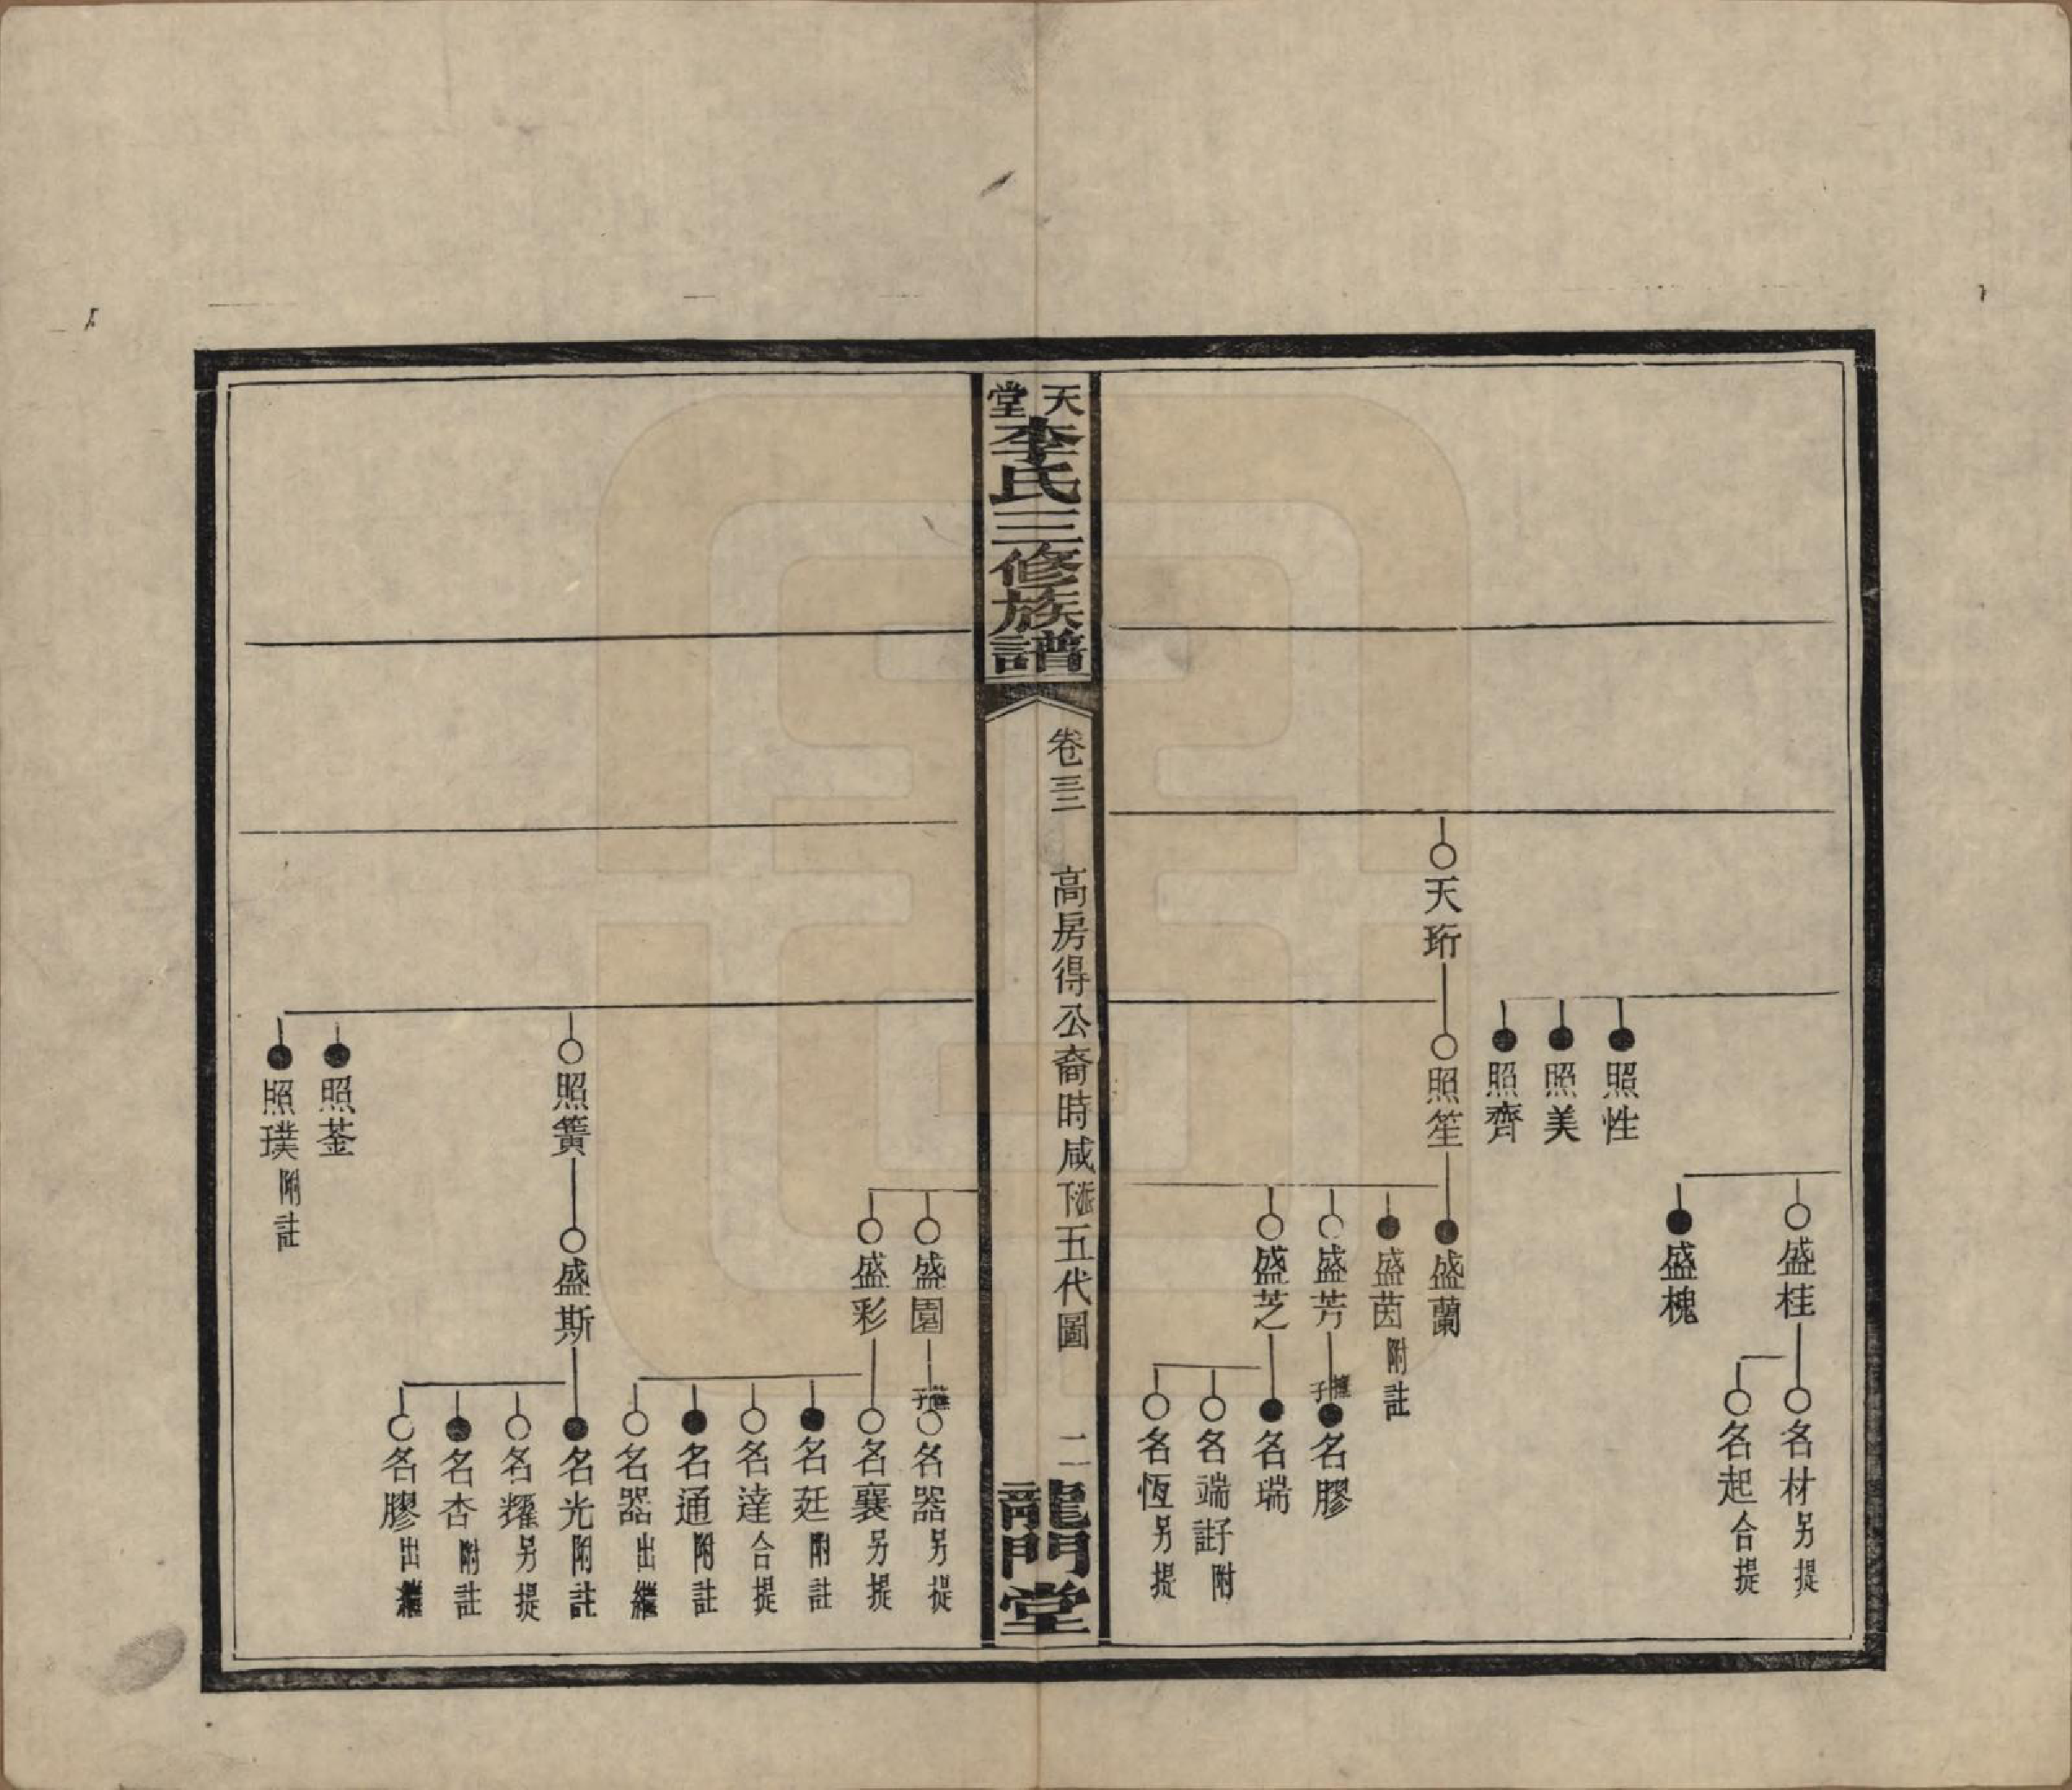 照性
照美
照齊
天珩
照笙
盛桂
盛槐
名材 另提
名起 合提
盛蘭
盛茵 附註
盛芳
盛芝
名膠
名瑞
名端 子附註
名恆 另提
天堂李氏三修族譜
卷三二
高房得公裔時咸下派五代圖
二
龍門堂
盛園
盛彩
名器 另提
名襄 另提
名廷 附註
名達 合提
名通 附註
名器 出繼
照簧
盛斯
名光 附註
名耀 另提
名杏 附註
名膠 出繼
照荃
照璞 附註